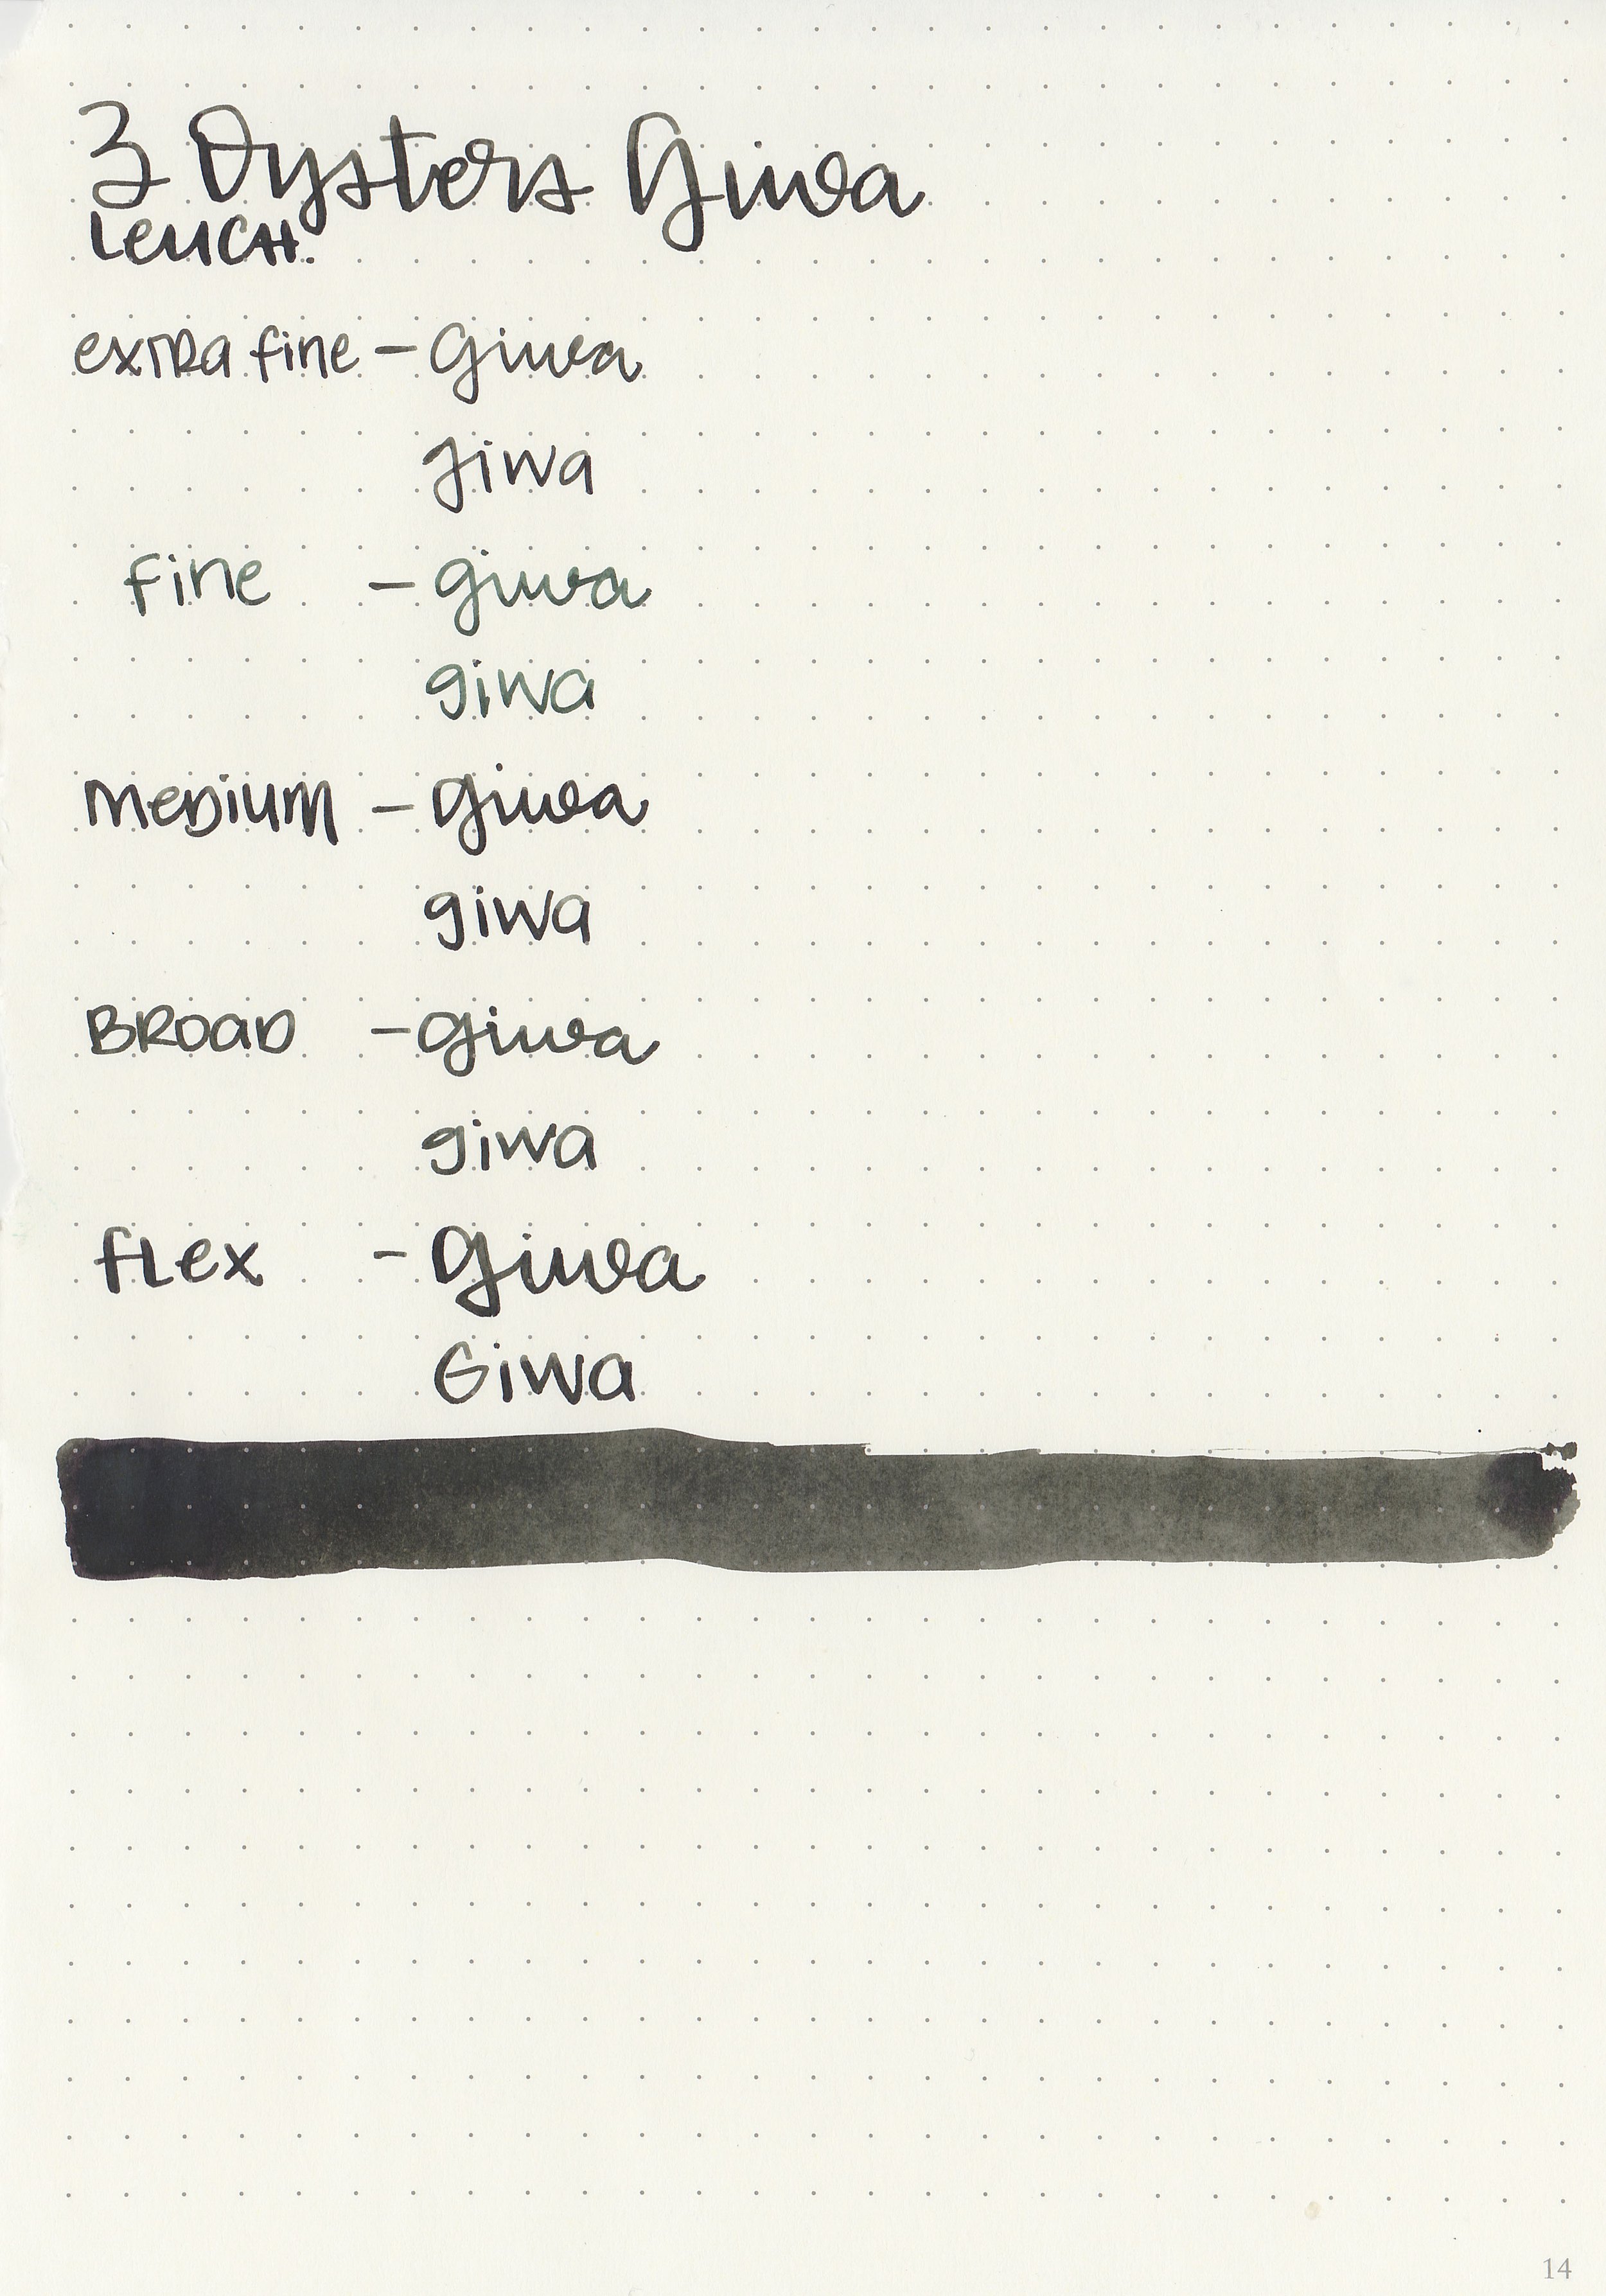 3 Oysters Giwa
Leuch.
extra fine - Giwa
giwa
fine - giwa
giwa
Medium - giwa
giwa
Broad - giwa
giwa
flex - Giwa
Giwa
14